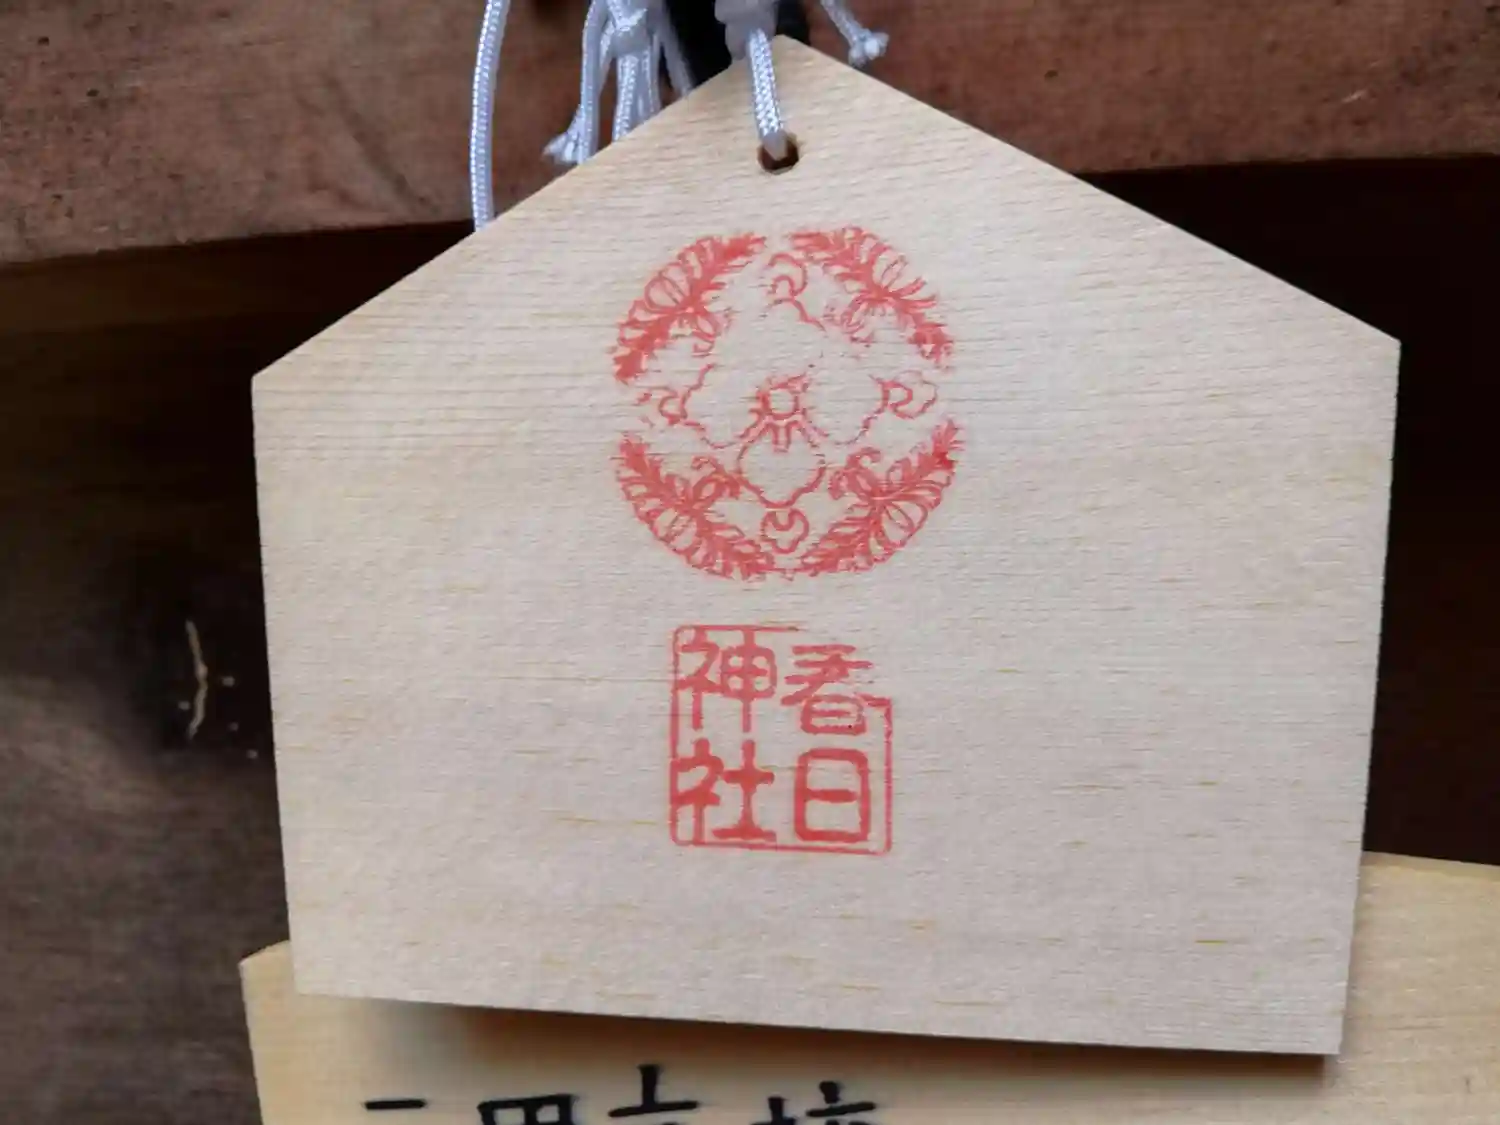 春日
神社